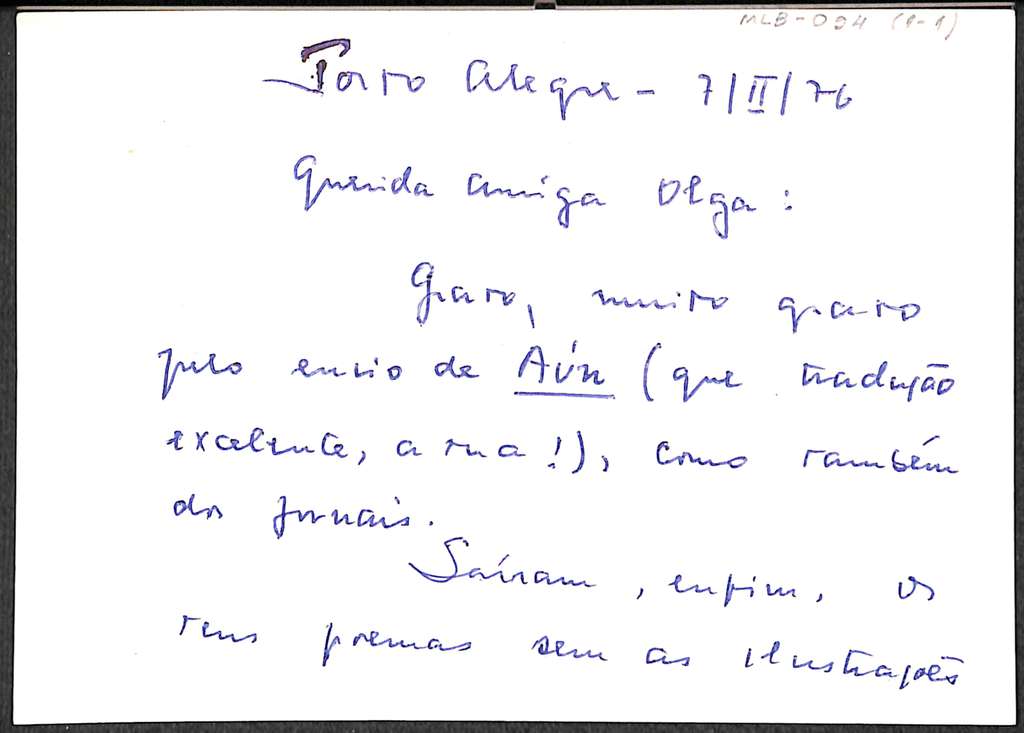 MLB-004 (1-1)
Porto Alegre - 7/II/76
Querida amiga Olga:
Grato, muito grato
pelo envio de Aún (que tradução
excelente, a tua!), como também
dos jornais.
Saíram, enfim, os
teus poemas sem as ilustrações